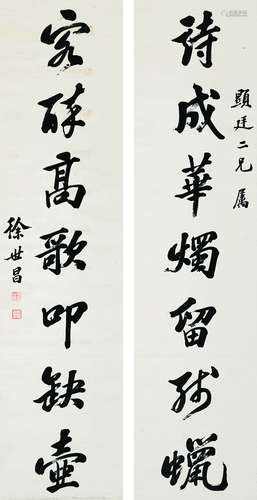 顯廷二兄屬
詩成華燭留殘蠟
客醉高歌叩缺壺
徐世昌